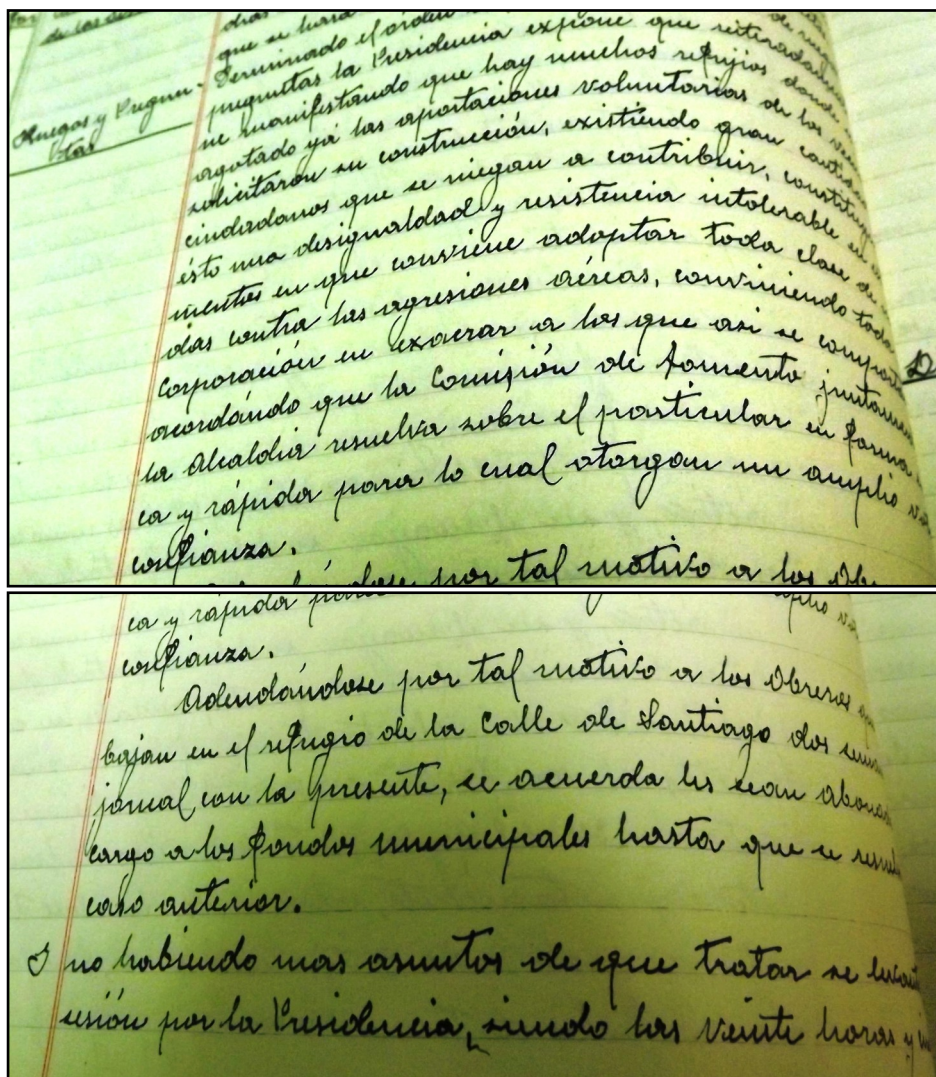 de las
que se hará
Ruegos y Pregun-
tas
Terminado el órden
preguntas la Presidencia expone que reiteradamen
ne manifestando que hay muchos refujios donde
agotado yá las aportaciones voluntarias de los veci
solicitaron su construcción, existiendo gran cantida
ciudadanos que se niegan a contribuir, constituye
ésto una desigualdad y resistencia intolerable en
mentos en que conviene adoptar toda clase de
das contra las agresiones aéreas, conviniendo toda
Corporación en exacrar a los que asi se comporta
acordándo que la Comisión de Fomento juntamen
la Alcaldia resuelva sobre el particular en forma
ca y rápida para lo cual otorgan un amplio vo
confianza.
por tal motivo a los Ob
ca y rápida
confianza.
Adeudándose por tal motivo a los Obreros
bajan en el refugio de la Calle de Santiago dos sema
jornal con la presente, se acuerda les sean abona
cargo a los fondos municipales hasta que se resuel
caso anterior.
Y no habiendo mas asuntos de que tratar se levant
sesión por la Presidencia, siendo las veinte horas y